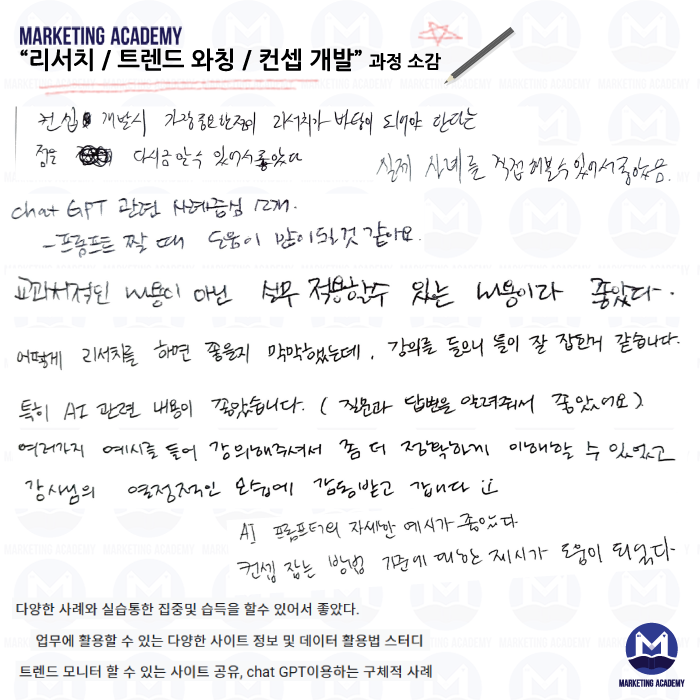 MARKETING ACADEMY
“리서치 / 트렌드 와칭 / 컨셉 개발” 과정 소감
컨셉 개발시 가장 중요한 점이 리서치가 바탕이 되어야 한다는
점을 다시금 알 수 있어서 좋았다
실제 사례를 직접 해볼 수 있어서 좋았음.
chat GPT 관련 사례중심 소개.
- 프롬프트 짤 때 도움이 많이 될 것 같아요.
교과서적인 내용이 아닌 실무 적용할 수 있는 내용이라 좋았다.
어떻게 리서치를 하면 좋을지 막막했었는데, 강의를 들으니 틀이 잘 잡힌거 같습니다.
특히 AI 관련 내용이 좋았습니다. (질문과 답변을 알려줘서 좋았어요)
여러가지 예시를 들어 강의해주셔서 좀 더 정확하게 이해할 수 있었고
강사님의 열정적인 모습에 감동받고 갑니다
AI 프롬프터의 자세한 예시가 좋았다
컨셉 잡는 방법 기준에 대한 제시가 도움이 되었다
다양한 사례와 실습통한 집중및 습득을 할수 있어서 좋았다.
업무에 활용할 수 있는 다양한 사이트 정보 및 데이터 활용법 스터디
트렌드 모니터 할 수 있는 사이트 공유, chat GPT이용하는 구체적 사례
MARKETING ACADEMY